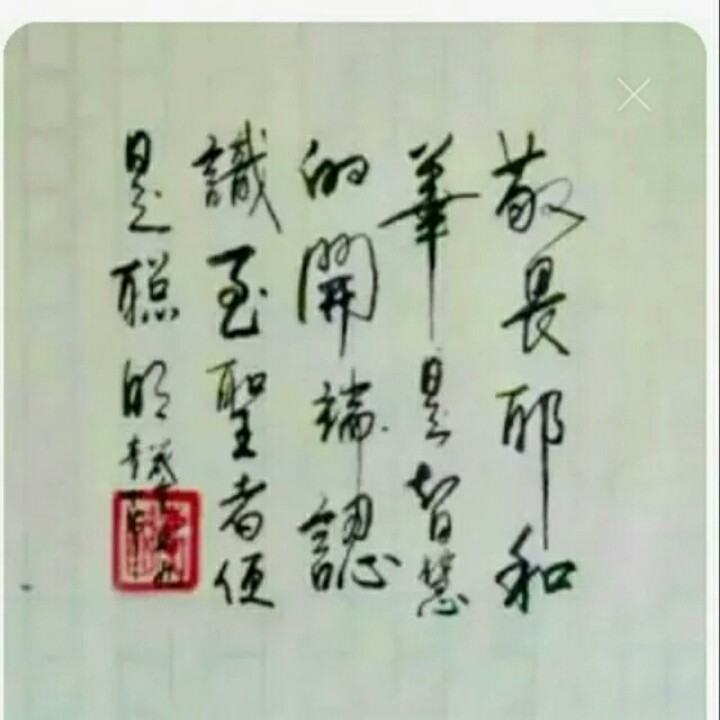 敬畏耶和
華是智慧
的開端認
識至聖者便
是聰明
箴言